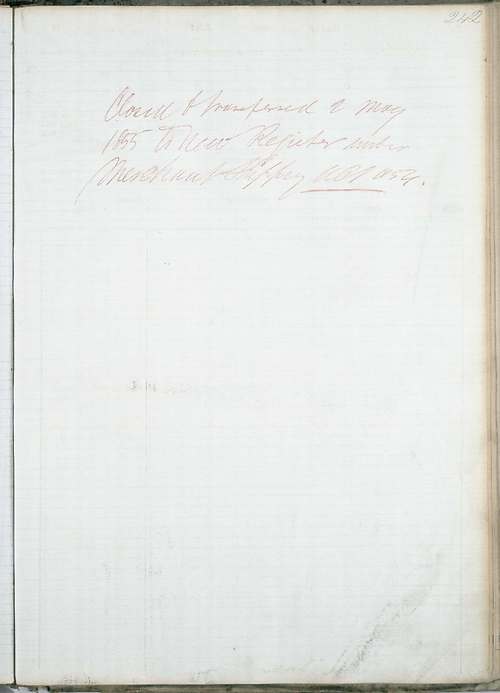 242
Closed & transferred 2 May
1855 to new Register under
Merchant Shipping Act 1854.